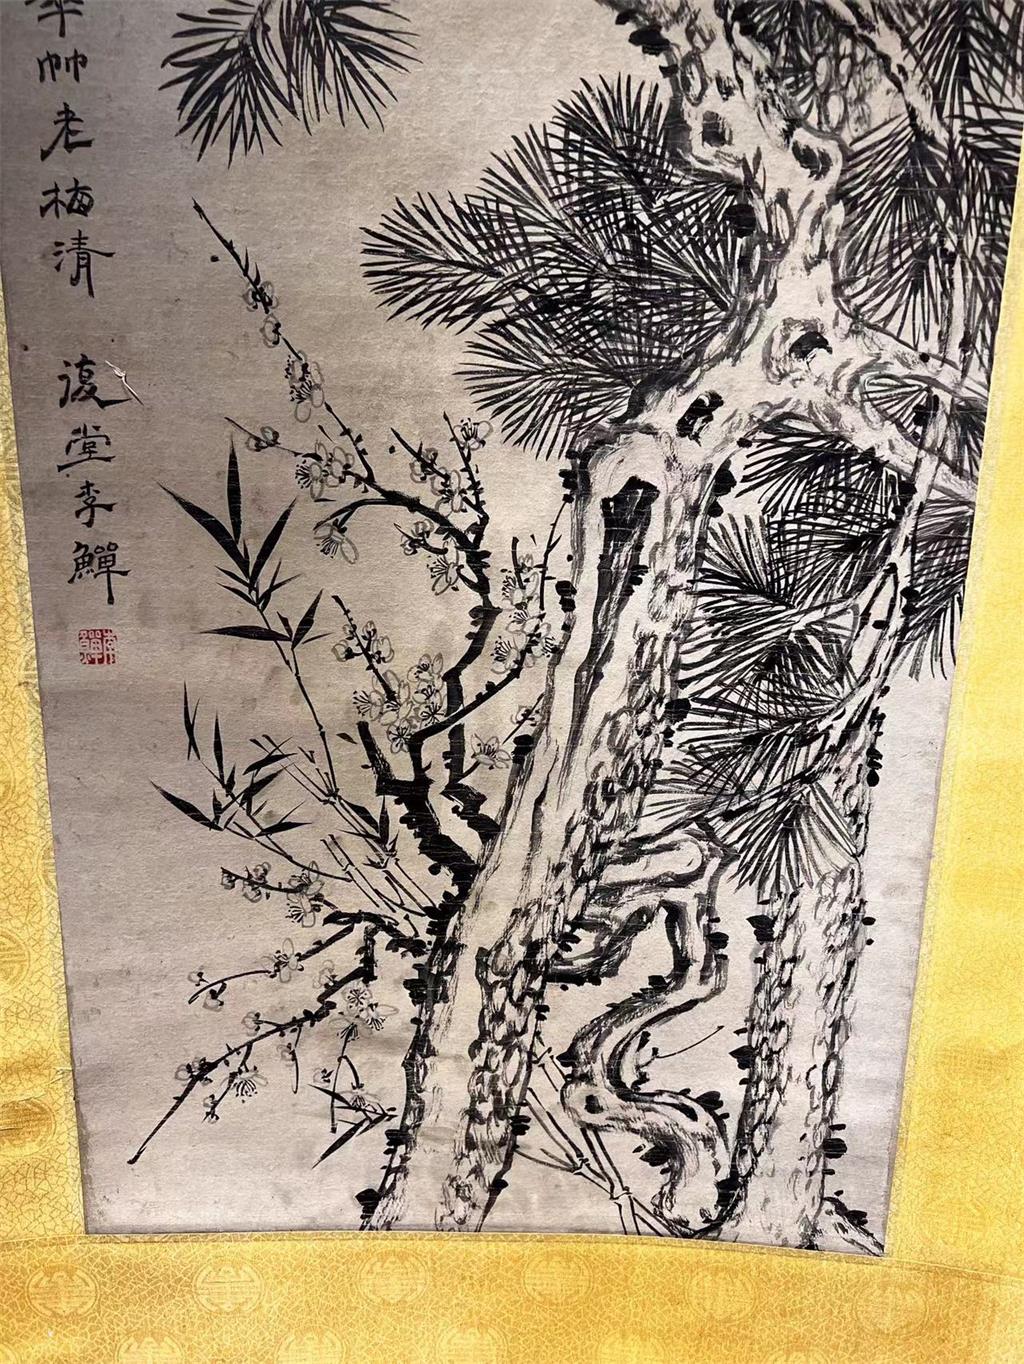 帅老梅清
復堂李鱓